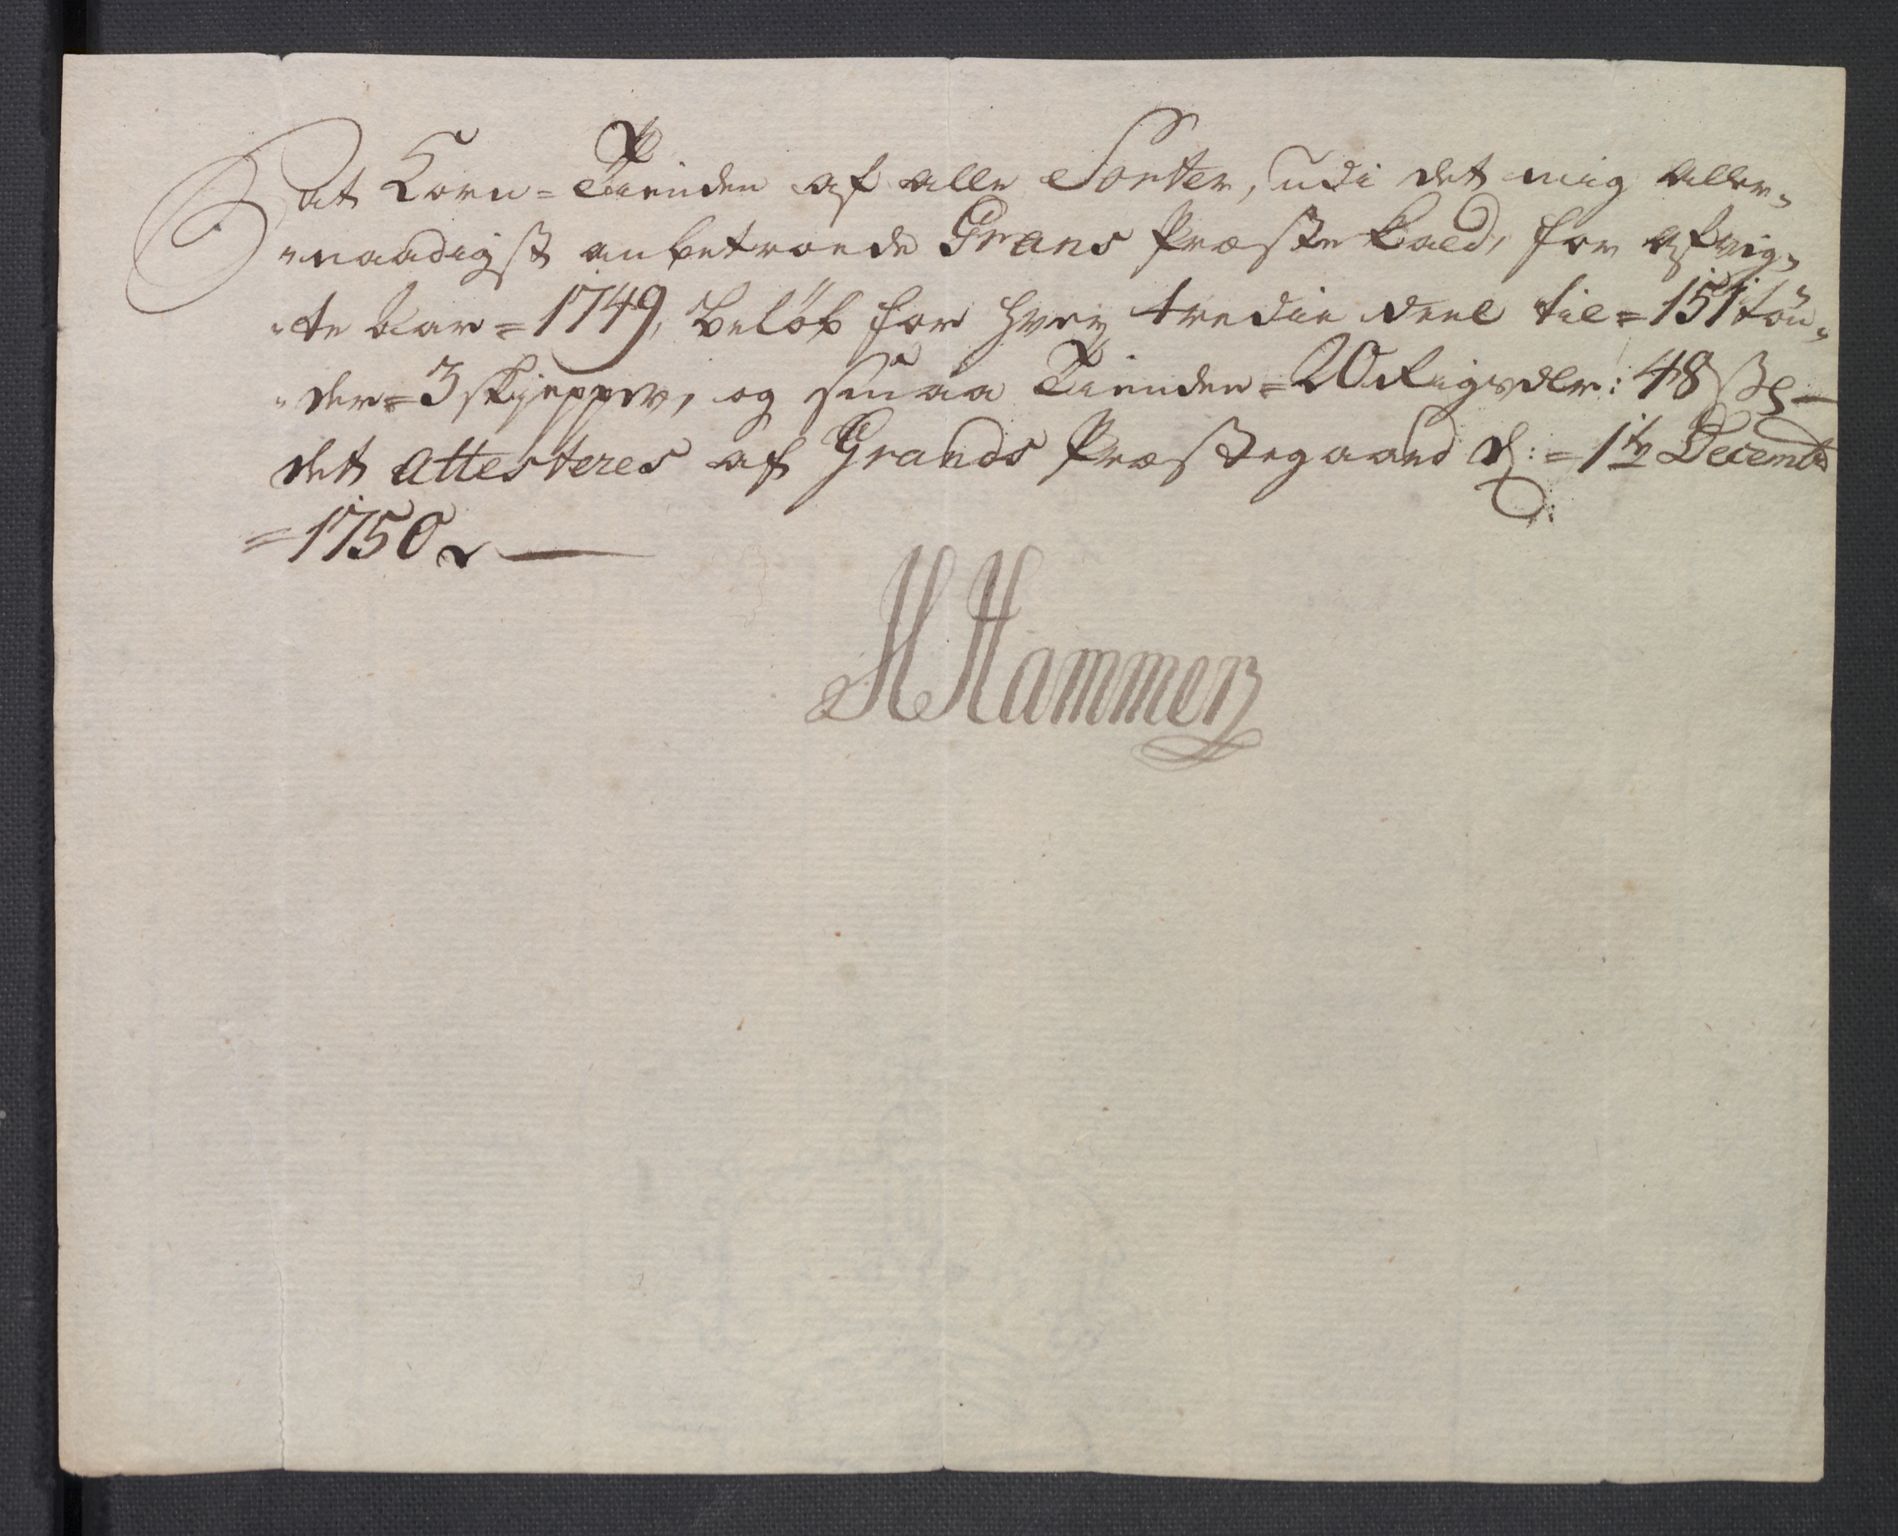 at Korn-Tienden af alle Sorter, udi det mig aller-
naadigst anbetroede Grans Præste Kald, for afvig-
te Aar = 1749, beløb for hver tredie deel til = 151 tøn-
der = 3 skjepper, og smaa Tienden = 20 Rigsdlr: 48 ß
det Attesteres af Grands Præstegaard d: = 1te Decembr
= 1750
H Hammer